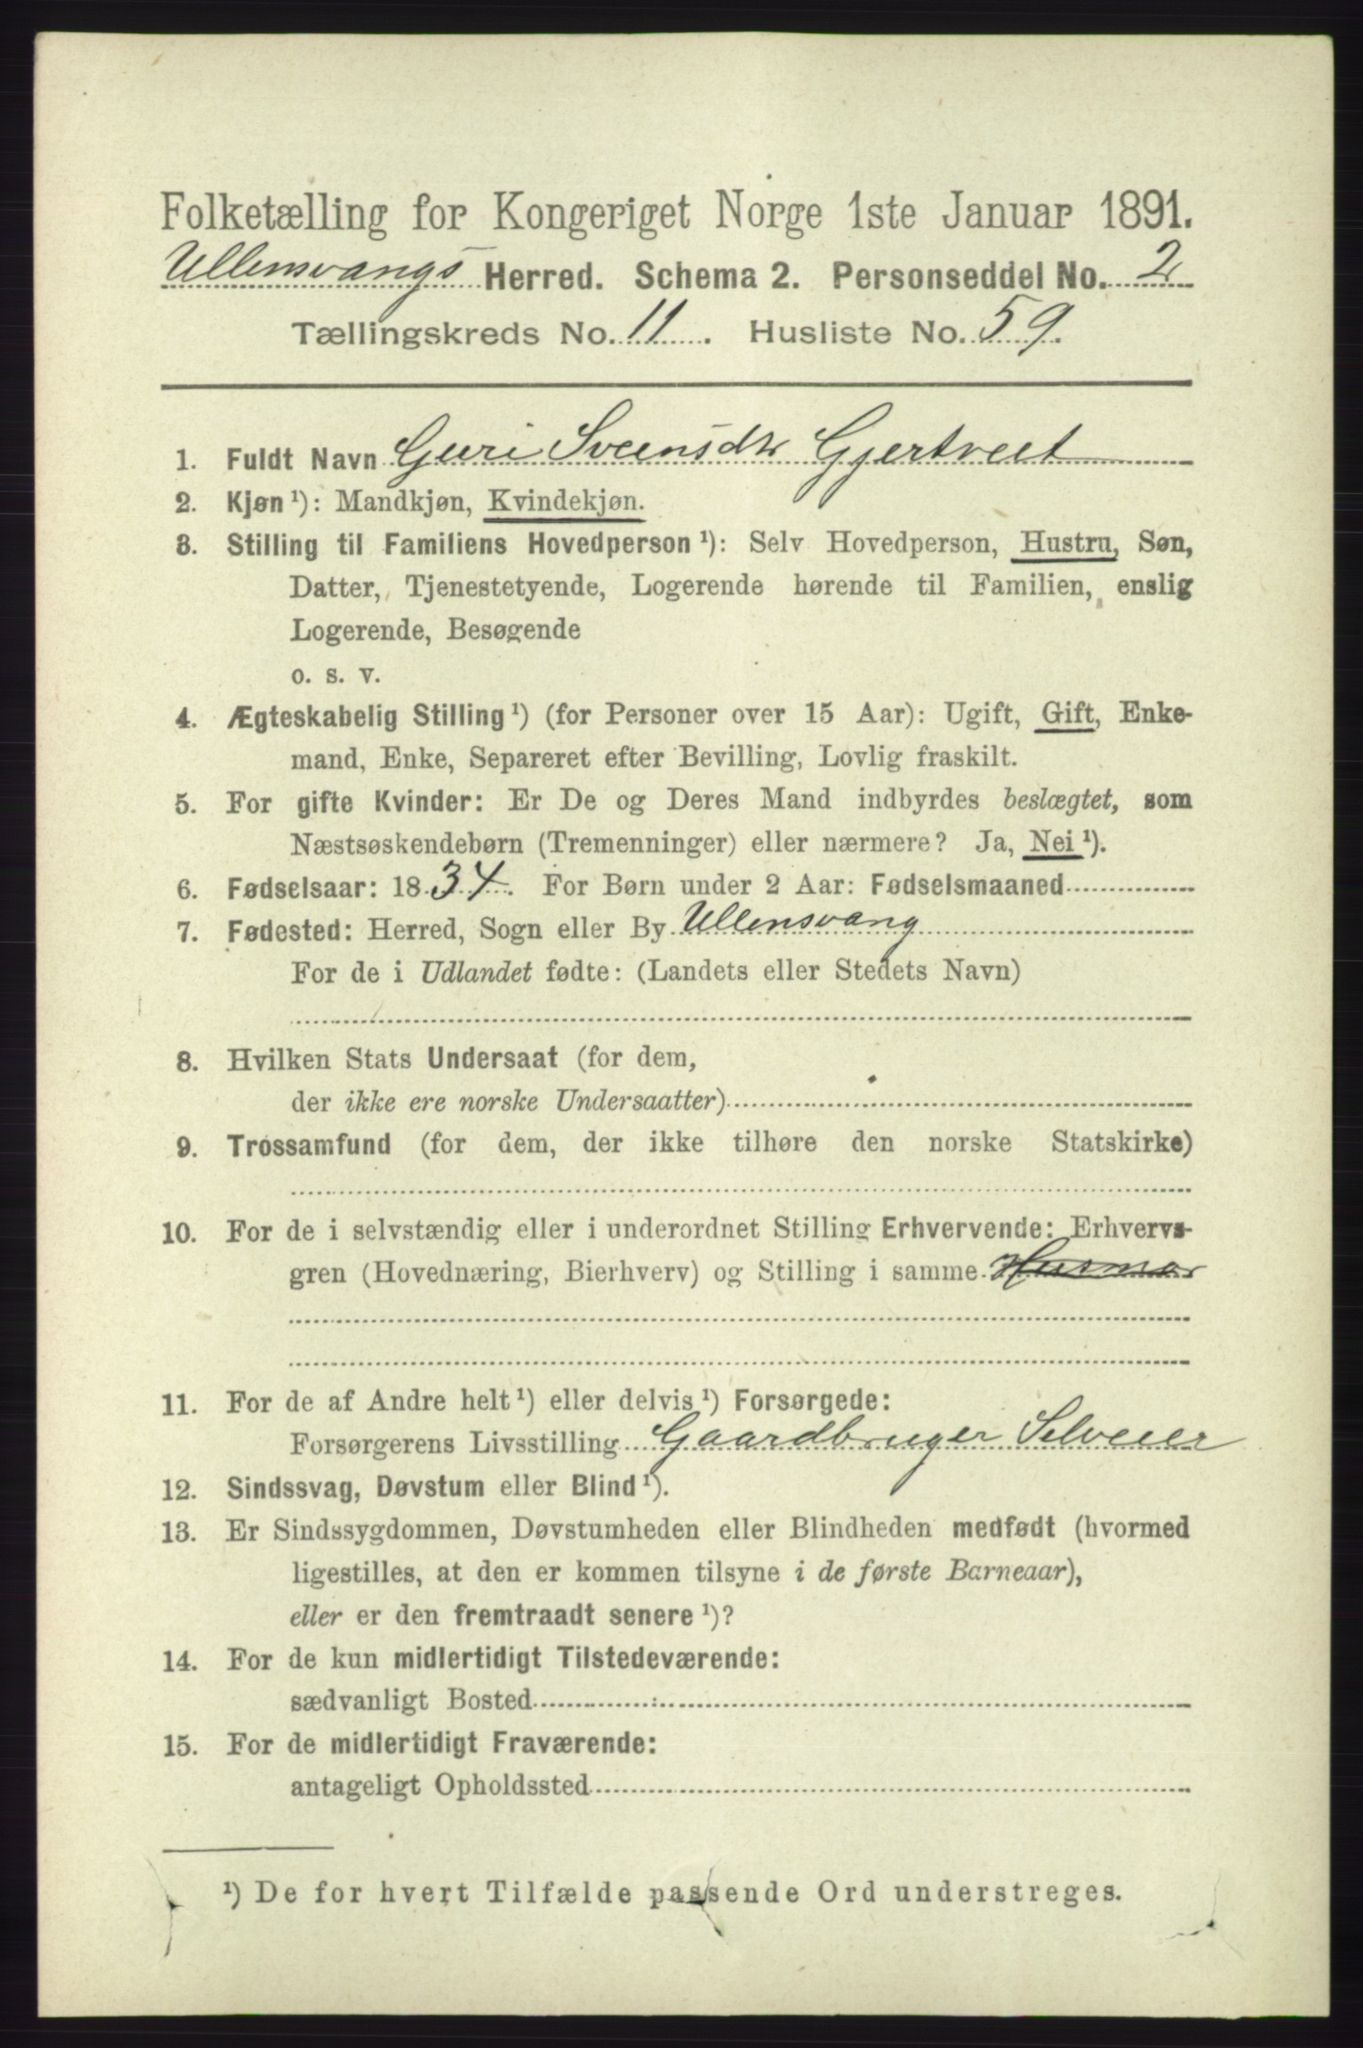 Folketælling for Kongeriget Norge 1ste Januar 1891.
Ullensvangs Herred. Schema 2. Personseddel No. 2
Tællingskreds No. 11. Husliste No. 59.
1. Fuldt Navn Guri Sveinsdtr Gjertveit
2. Kjøn ¹): Mandkjøn, Kvindekjøn.
3. Stilling til Familiens Hovedperson ¹): Selv Hovedperson, Hustru, Søn,
Datter, Tjenestetyende, Logerende hørende til Familien, enslig
Logerende, Besøgende
o. s. v.
4. Ægteskabelig Stilling ¹) (for Personer over 15 Aar): Ugift, Gift, Enke-
mand, Enke, Separeret efter Bevilling, Lovlig fraskilt.
5. For gifte Kvinder: Er De og Deres Mand indbyrdes beslægtet, som
Næstsøskendebørn (Tremenninger) eller nærmere? Ja, Nei ¹).
6. Fødselsaar: 1834. For Børn under 2 Aar: Fødselsmaaned
7. Fødested: Herred, Sogn eller By Ullensvang
For de i Udlandet fødte: (Landets eller Stedets Navn)
8. Hvilken Stats Undersaat (for dem,
der ikke ere norske Undersaatter)
9. Trossamfund (for dem, der ikke tilhøre den norske Statskirke)
10. For de i selvstændig eller i underordnet Stilling Erhvervende: Erhvervs-
gren (Hovednæring, Bierhverv) og Stilling i samme Husmor
11. For de af Andre helt ¹) eller delvis ¹) Forsørgede:
Forsørgerens Livsstilling Gaardbruger Selveier
12. Sindssvag, Døvstum eller Blind ¹).
13. Er Sindssygdommen, Døvstumheden eller Blindheden medfødt (hvormed
ligestilles, at den er kommen tilsyne i de første Barneaar),
eller er den fremtraadt senere ¹)?
14. For de kun midlertidigt Tilstedeværende:
sædvanligt Bosted
15. For de midlertidigt Fraværende:
antageligt Opholdssted
¹) De for hvert Tilfælde passende Ord understreges.